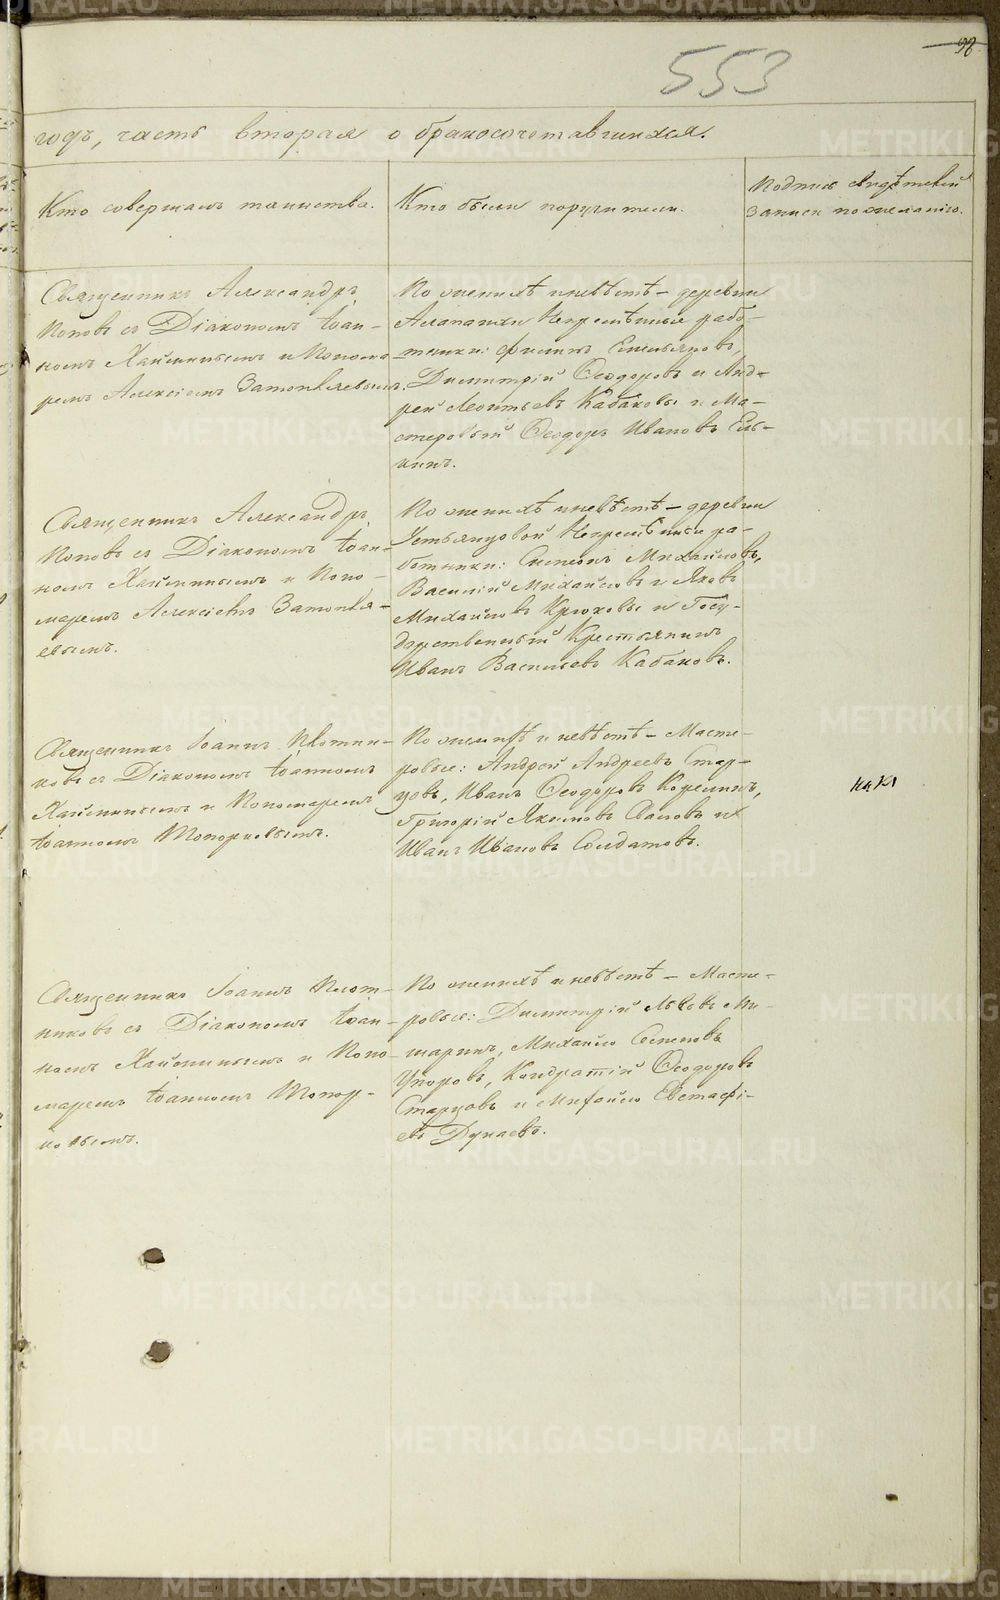 98
553
годъ, часть вторая о бракосочетавшихся.
Кто совершалъ таинство.
Кто были поручители.
Подпись свидѣтелей
записи по желанію.
Священникъ Александръ
Поповъ съ Діакономъ Іоан-
номъ Хаймининымъ и Понома-
ремъ Алексіемъ
По женихѣ и невѣстѣ – деревни
Алапаихи Непремѣнные рабо-
тники: Филипъ Емельяновъ,
Димитрій Ѳеодоровъ и Анд-
рей Леонтьевъ Кабаковы и Ма-
стеровый Ѳеодоръ Ивановъ Ель-
кинъ.
Священникъ Александръ
Поповъ съ Діакономъ Іоан-
номъ Хаймининымъ и Поно-
маремъ Алексіемъ
евымъ.
По женихѣ и невѣстѣ – деревни
Устьянцовой Непремѣнные ра-
ботники: Симеонъ Михайловъ,
Василій Михайловъ и Яковъ
Михайловъ Крюковы и Госу-
дарственный Крестьянинъ
Иванъ Васильевъ Кабаковъ.
Священникъ Іоаннъ Плотни-
ковъ съ Діакономъ Іоанномъ
Хаймининымъ и Пономаремъ
Іоанномъ Топорковымъ.
По женихѣ и невѣстѣ – Масте-
ровые: Андрей Андреевъ Стар-
цовъ, Иванъ Ѳеодоровъ Корелинъ,
Григорій Якимовъ и
Иванъ Ивановъ Солдатовъ.
Священникъ Іоаннъ Плот-
никовъ съ Діакономъ Іоан-
номъ Хаймининымъ и Поно-
маремъ Іоанномъ Топор-
ковымъ.
По женихѣ и невѣстѣ – Масте-
ровые: Димитрій Львовъ Ми-
шаринъ, Михайло Семеновъ
Упоровъ, Кондратій Ѳеодоровъ
Старцовъ и Михайло Евстафі-
евъ Дунаевъ.
METRIKI.GASO-URAL.RU